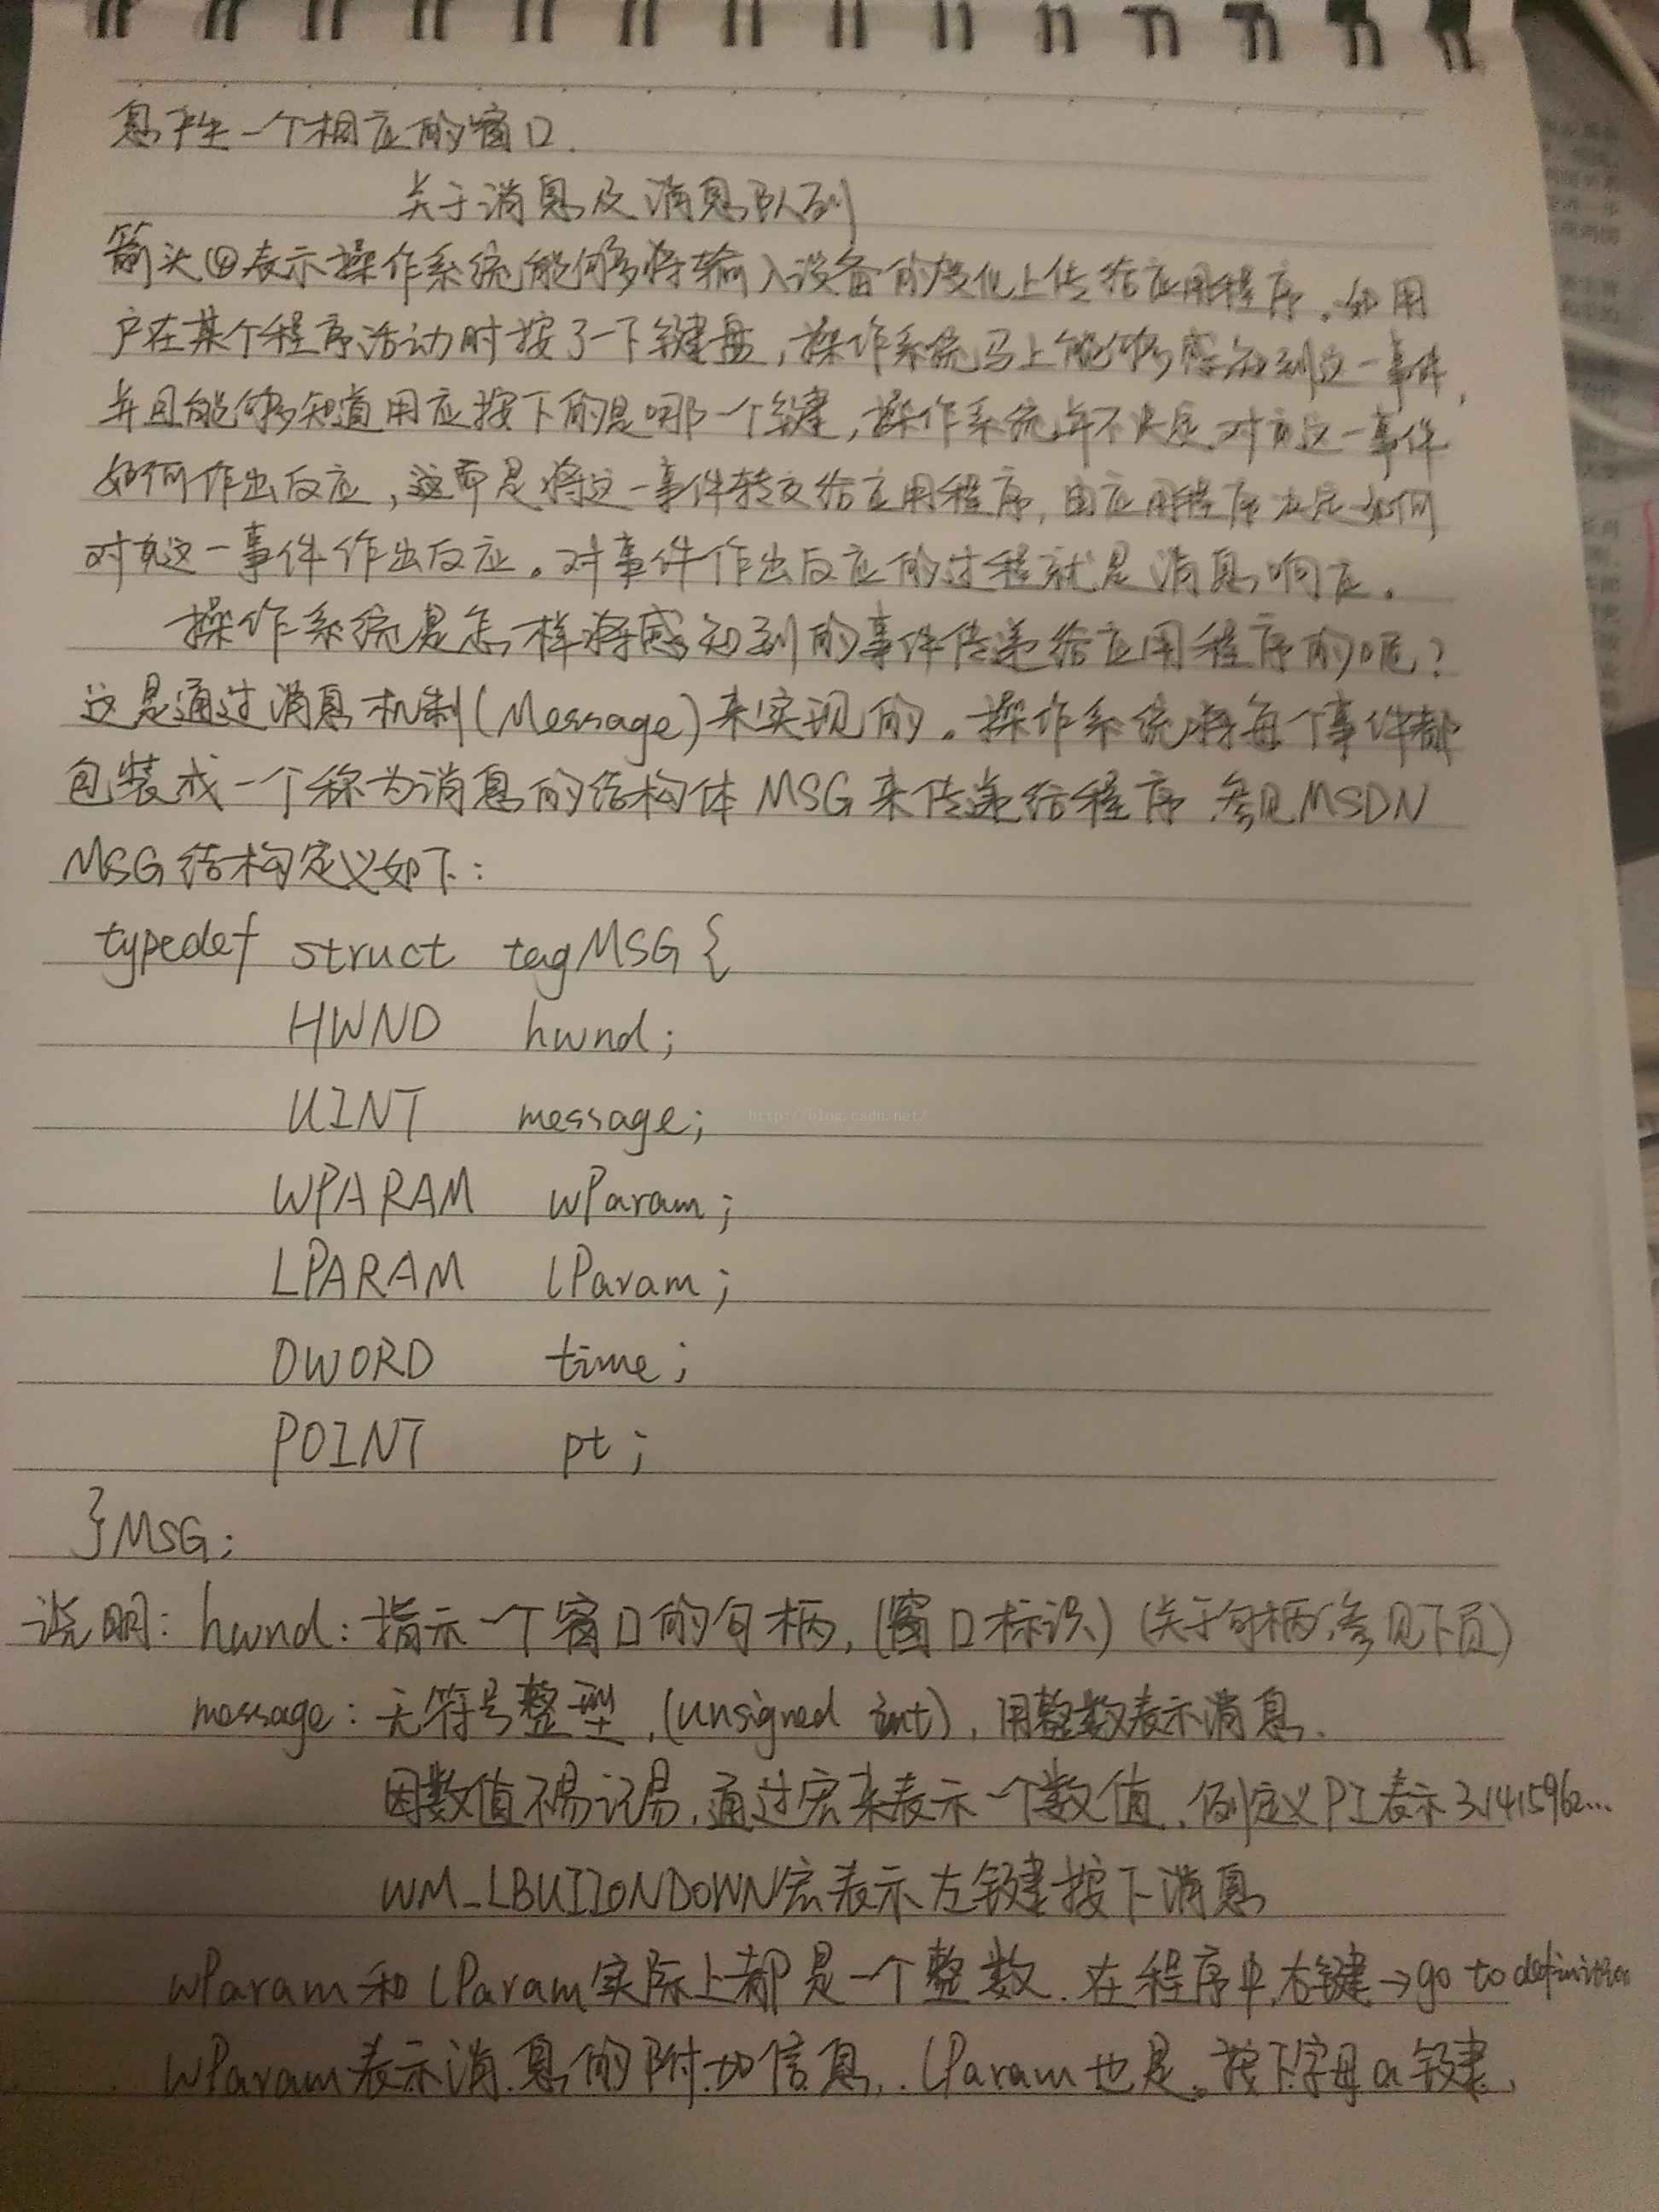 息产生一个相应的窗口.
关于消息及消息队列
箭头④表示操作系统能够将输入设备的变化上传给应用程序。如用
户在某个程序活动时按了一下键盘,操作系统马上能够感知到这一事件,
并且能够知道用应按下的是哪一个键,操作系统并不决定对这一事件
如何作出反应,而是将这一事件转交给应用程序,由应用程序决定如何
对这一事件作出反应。对事件作出反应的过程就是消息响应。
操作系统是怎样将感知到的事件传递给应用程序的呢?
这是通过消息机制(Message)来实现的。操作系统将每个事件都
包装成一个称为消息的结构体MSG来传递给程序.参见MSDN
MSG结构定义如下:
typedef struct tagMSG {
HWND hwnd;
UINT message;
http://blog.csdn.net/
WPARAM wParam;
LPARAM lParam;
DWORD time;
POINT pt;
}MSG;
说明: hwnd:指示一个窗口的句柄,(窗口标识)(关于句柄,参见下页)
message:无符号整型,(unsigned int),用整数表示消息.
因数值不易记易,通过宏来表示一个数值.例定义PI表示3.141596...
WM_LBUTTONDOWN宏表示左键按下消息
wParam和lParam实际上都是一个整数.在程序中,右键→go to definition
wParam表示消息的附加信息,.lParam也是。按下字母a键,